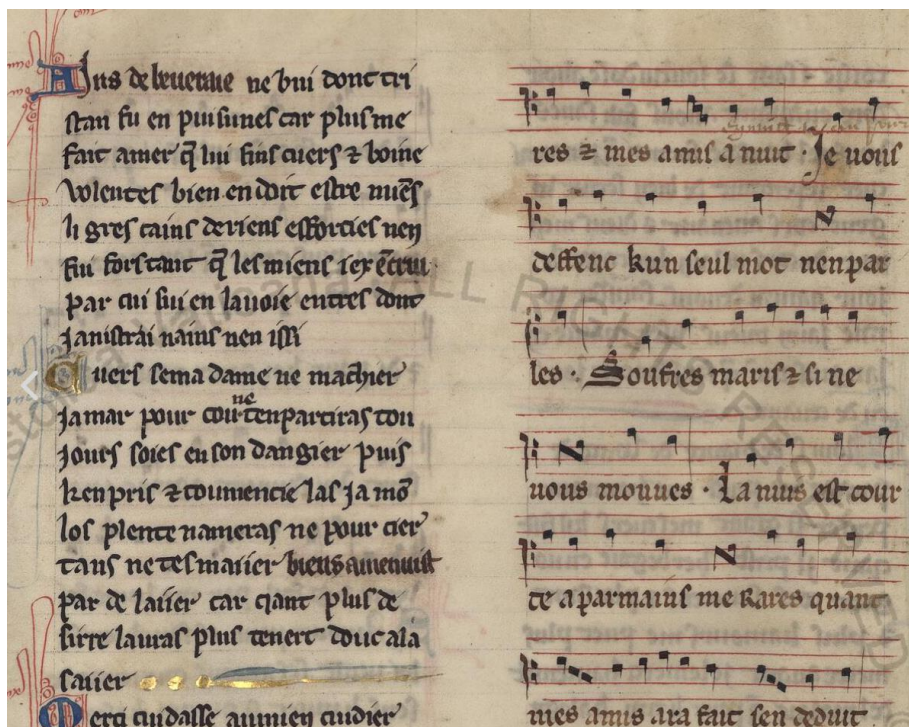 Ains de beueraie ne bui dont tri
stan fu en puisunes car plus me
fait amer q̃ lui fins cuers ⁊ boine
volentes bien en doit estre miẽs
li gres cains de riens efforcies nen
fui fors tant q̃ les miens iex
par cui sui en la uoie entres dont
ja nistrai nains nen issi
Cuers se ma dame ne ma chier
ja mar pour cou ne ten partiras tou
jours soies en son dangier puis
ken pris ⁊ coumencie las ja mõ
los plente nameras ne pour cier
tans ne tesmaiier biens amenuist
par de laiier car qant plus de
sirre lauras plus tenert douc a la
saiier
Merci cuidasse au mien cuidier
res ⁊ mes amis a nuit · Je uous
deffenc kun seul mot nen par
les · Soufres maris ⁊ si ne
uous mouues · La nuis est cour
te aparmains me rares quant
mes amis ara fait sen deduit
ALL RIGHTS RESERVED